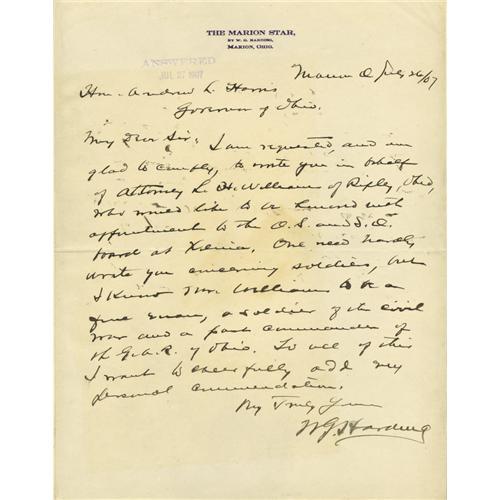 THE MARION STAR,
BY W. G. HARDING,
MARION, OHIO.
ANSWERED
JUL 27 1907
Marion O July 26/07
Hon. Andrew L. Harris
Governor of Ohio.
My Dear Sir: I am requested, and am
glad to comply, to write you in behalf
of Attorney L. H. Williams of Ripley, Ohio,
who would like to be honored with
appointment to the O. S. and S. O.
board at Xenia. One need hardly
write you concerning soldiers, but
I know Mr. Williams to be a
fine man, a soldier of the civil
war and a past commander of
the G.A.R. of Ohio. To all of this
I want to cheerfully add my
personal commendation.
Very Truly Yours
W G Harding